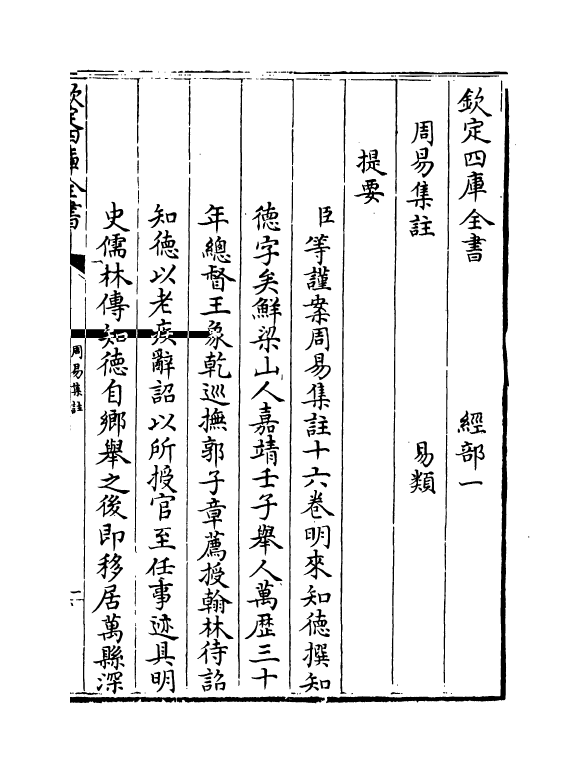 欽定四庫全書　　　經部一
周易集註　　　　　易類
提要
臣等謹案周易集註十六卷明來知德撰知
德字矣鮮梁山人嘉靖壬子舉人萬歷三十
年總督王象乾巡撫郭子章薦授翰林待詔
知德以老疾辭詔以所授官至任事迹具明
史儒林傳知德自鄉舉之後即移居萬縣深
欽定四庫全書
周易集註
一